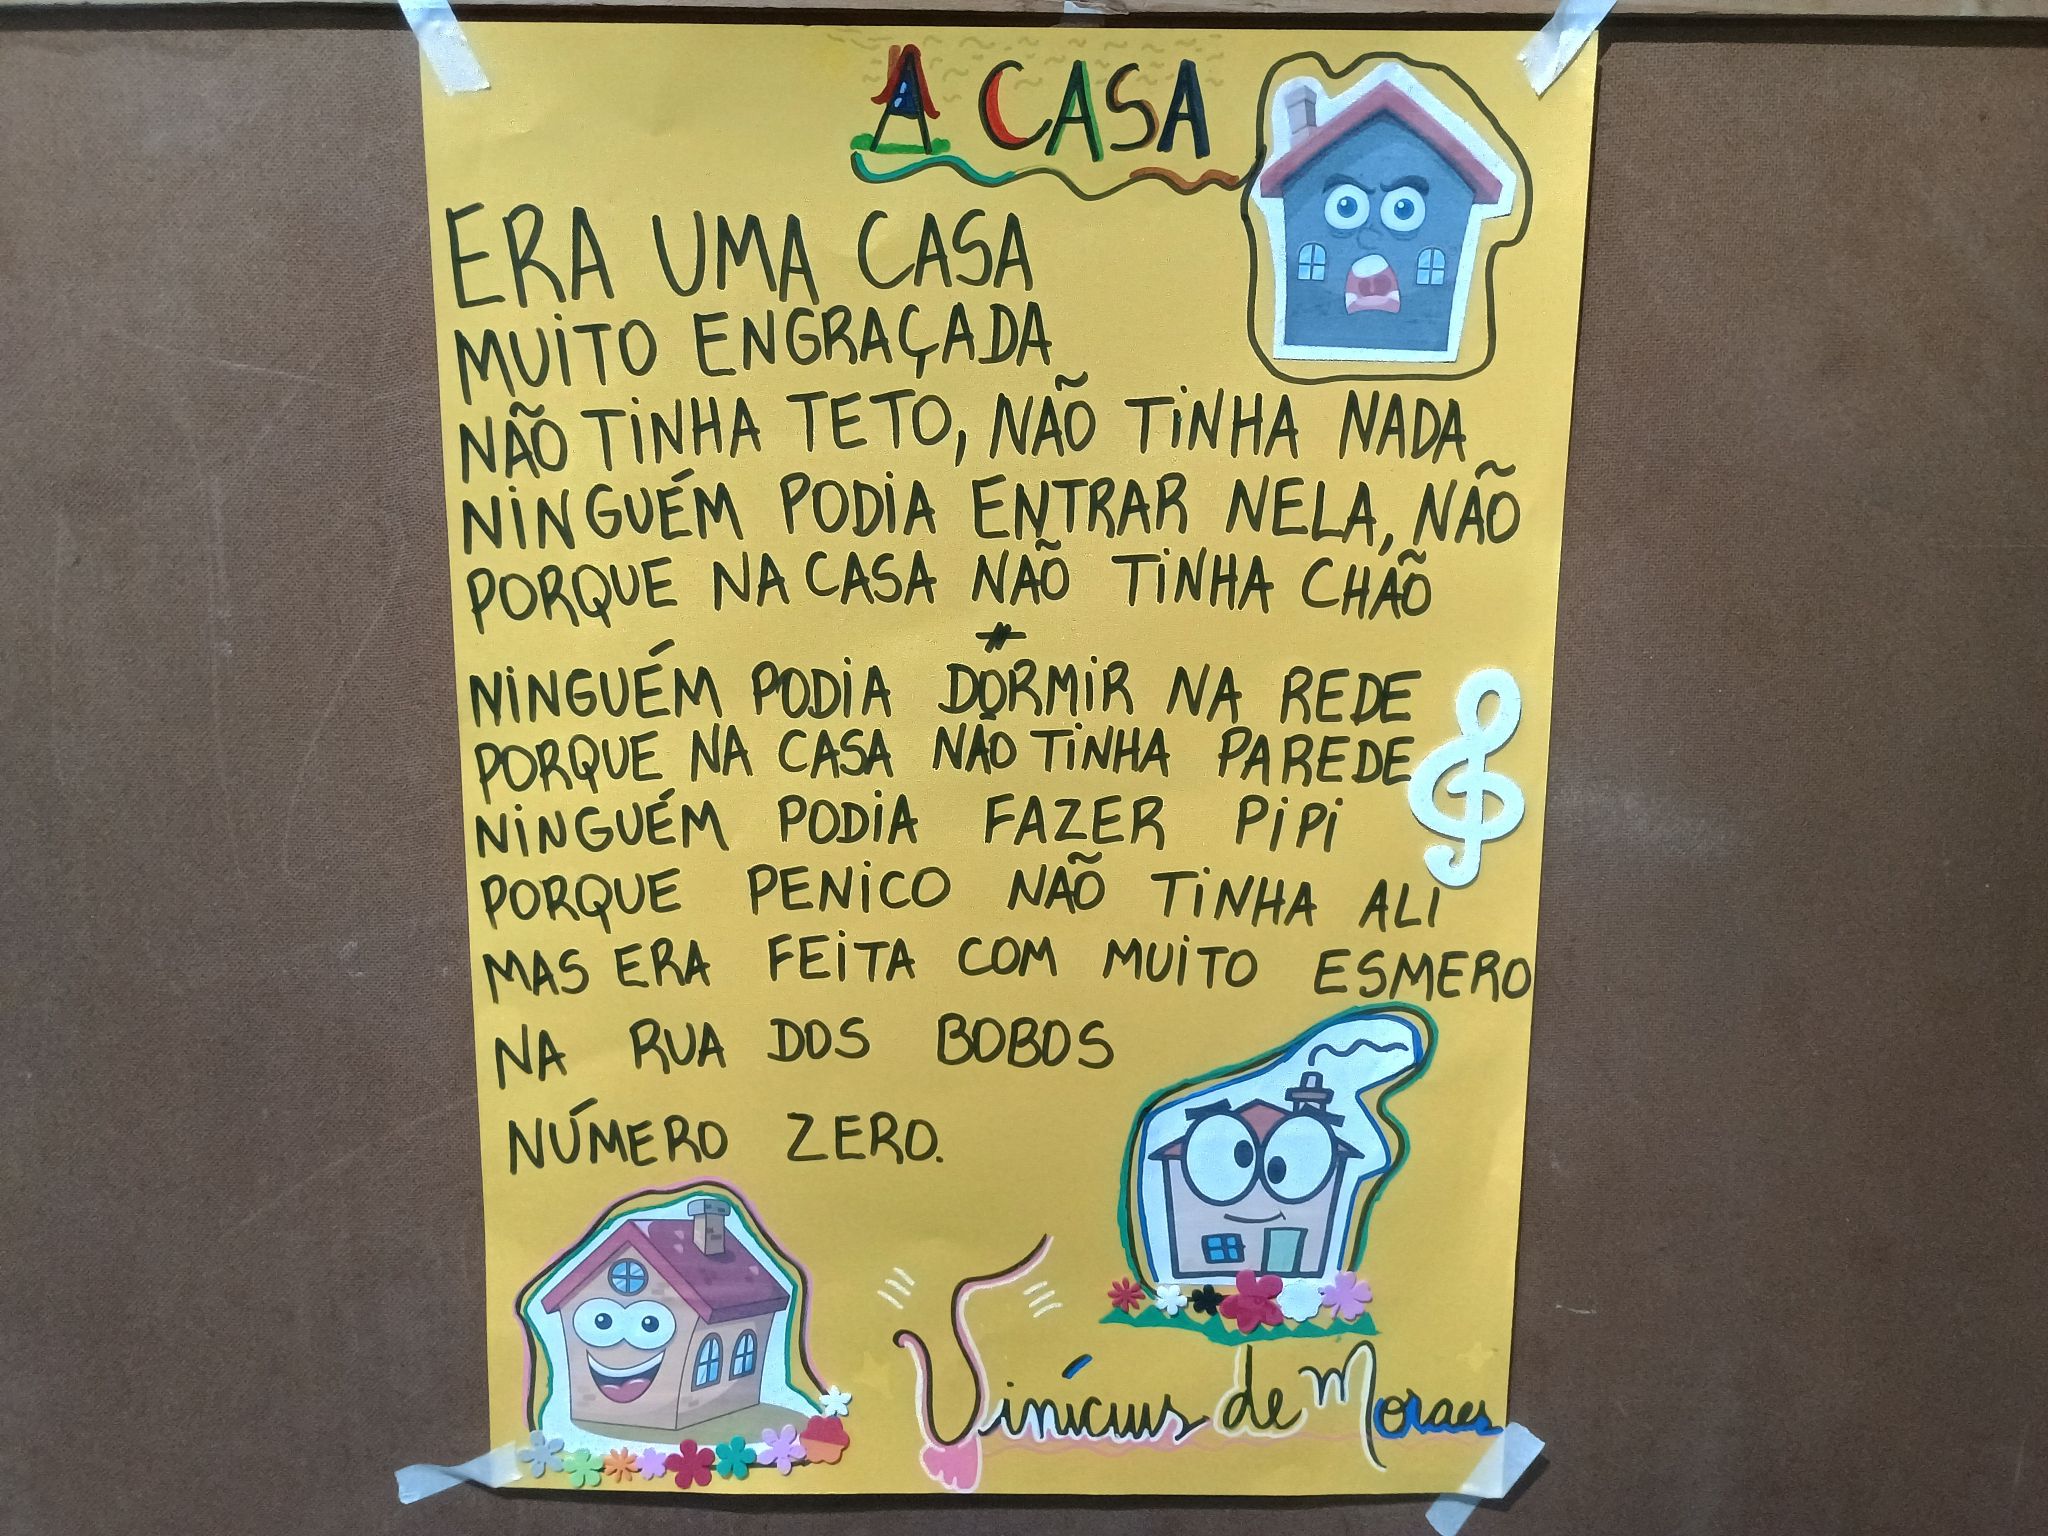 A CASA
ERA UMA CASA
MUITO ENGRAÇADA
NÃO TINHA TETO, NÃO TINHA NADA
NINGUÉM PODIA ENTRAR NELA, NÃO
PORQUE NA CASA NÃO TINHA CHÃO
*
NINGUÉM PODIA DORMIR NA REDE
PORQUE NA CASA NÃO TINHA PAREDE
NINGUÉM PODIA FAZER PIPI
PORQUE PENICO NÃO TINHA ALI
MAS ERA FEITA COM MUITO ESMERO
NA RUA DOS BOBOS
NÚMERO ZERO.
Vinícius de Moraes